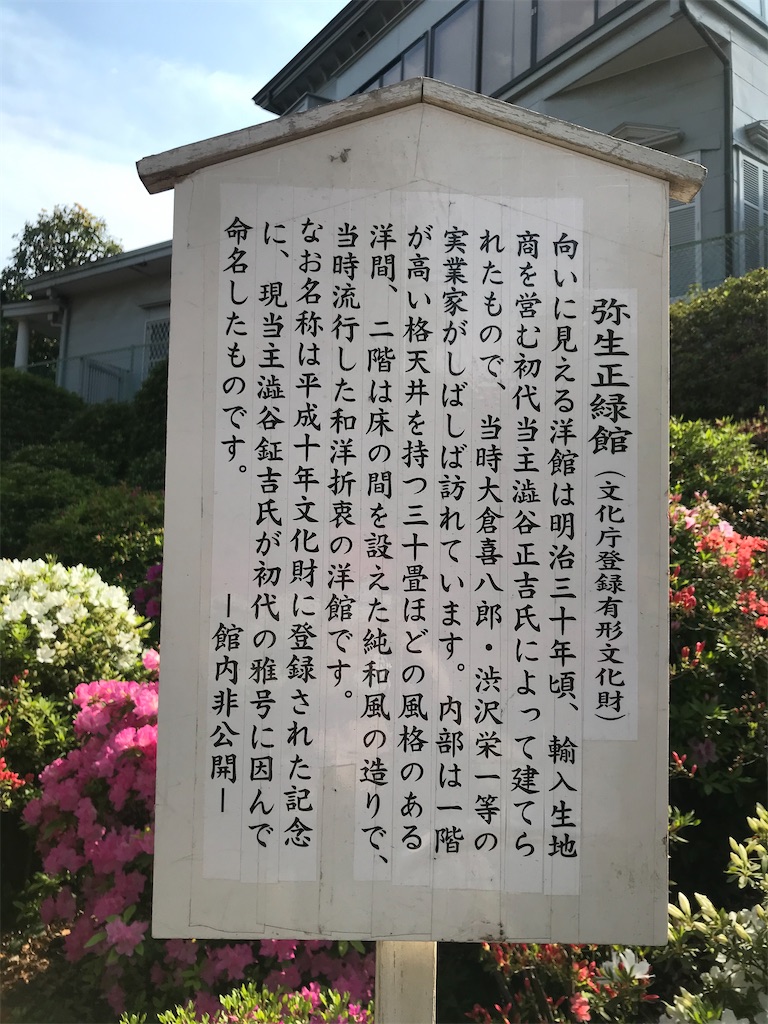 弥生正緑館（文化庁登録有形文化財）
向いに見える洋館は明治三十年頃、輸入生地
商を営む初代当主澁谷正吉氏によって建てら
れたもので、当時大倉喜八郎・渋沢栄一等の
実業家がしばしば訪れています。内部は一階
が高い格天井を持つ三十畳ほどの風格のある
洋間、二階は床の間を設えた純和風の造りで、
当時流行した和洋折衷の洋館です。
なお名称は平成十年文化財に登録された記念
に、現当主澁谷鉦吉氏が初代の雅号に因んで
命名したものです。
ー館内非公開ー